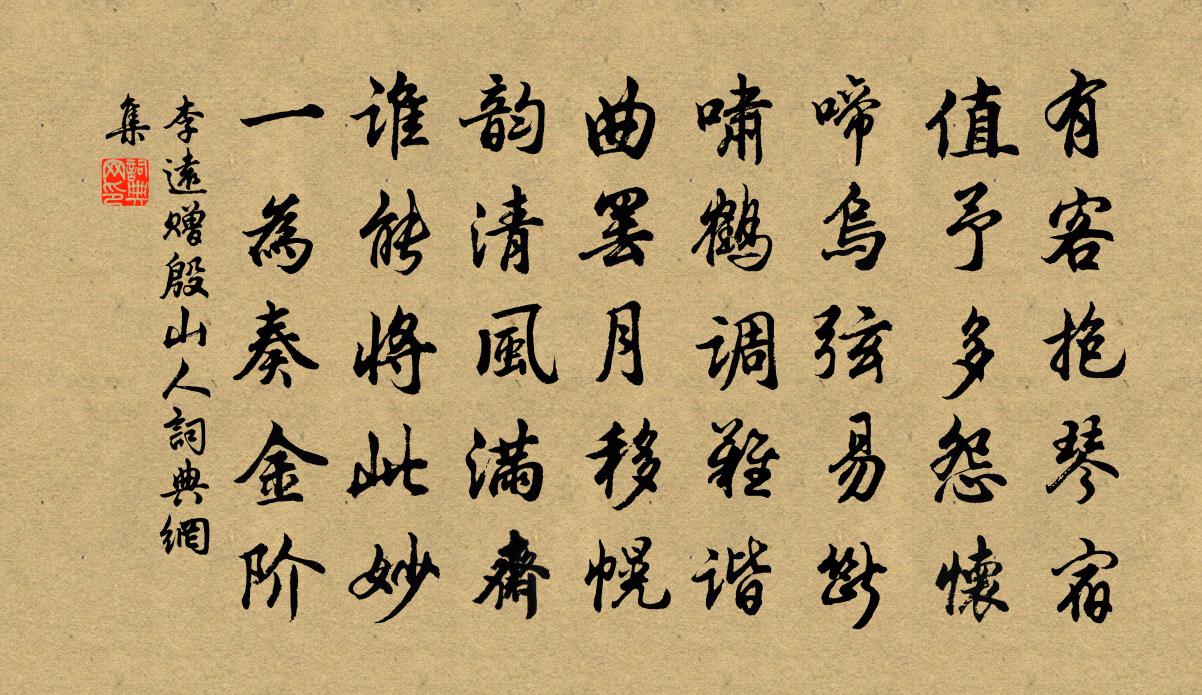 有客抱琴宿
值予多怨懷
啼烏弦易斷
嘯鶴调難谐
曲罢月移幌
韵清風满齋
谁能將此妙
一為奏金阶
李遠赠殷山人詞典網
集
詞典
网印